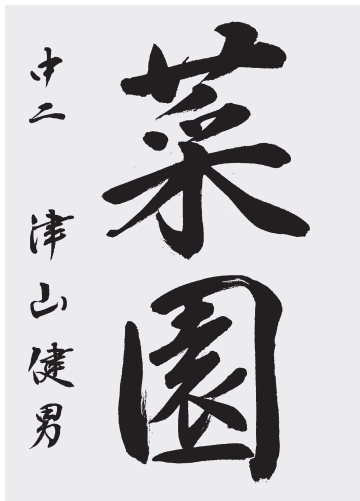 菜園
中二 津山健男